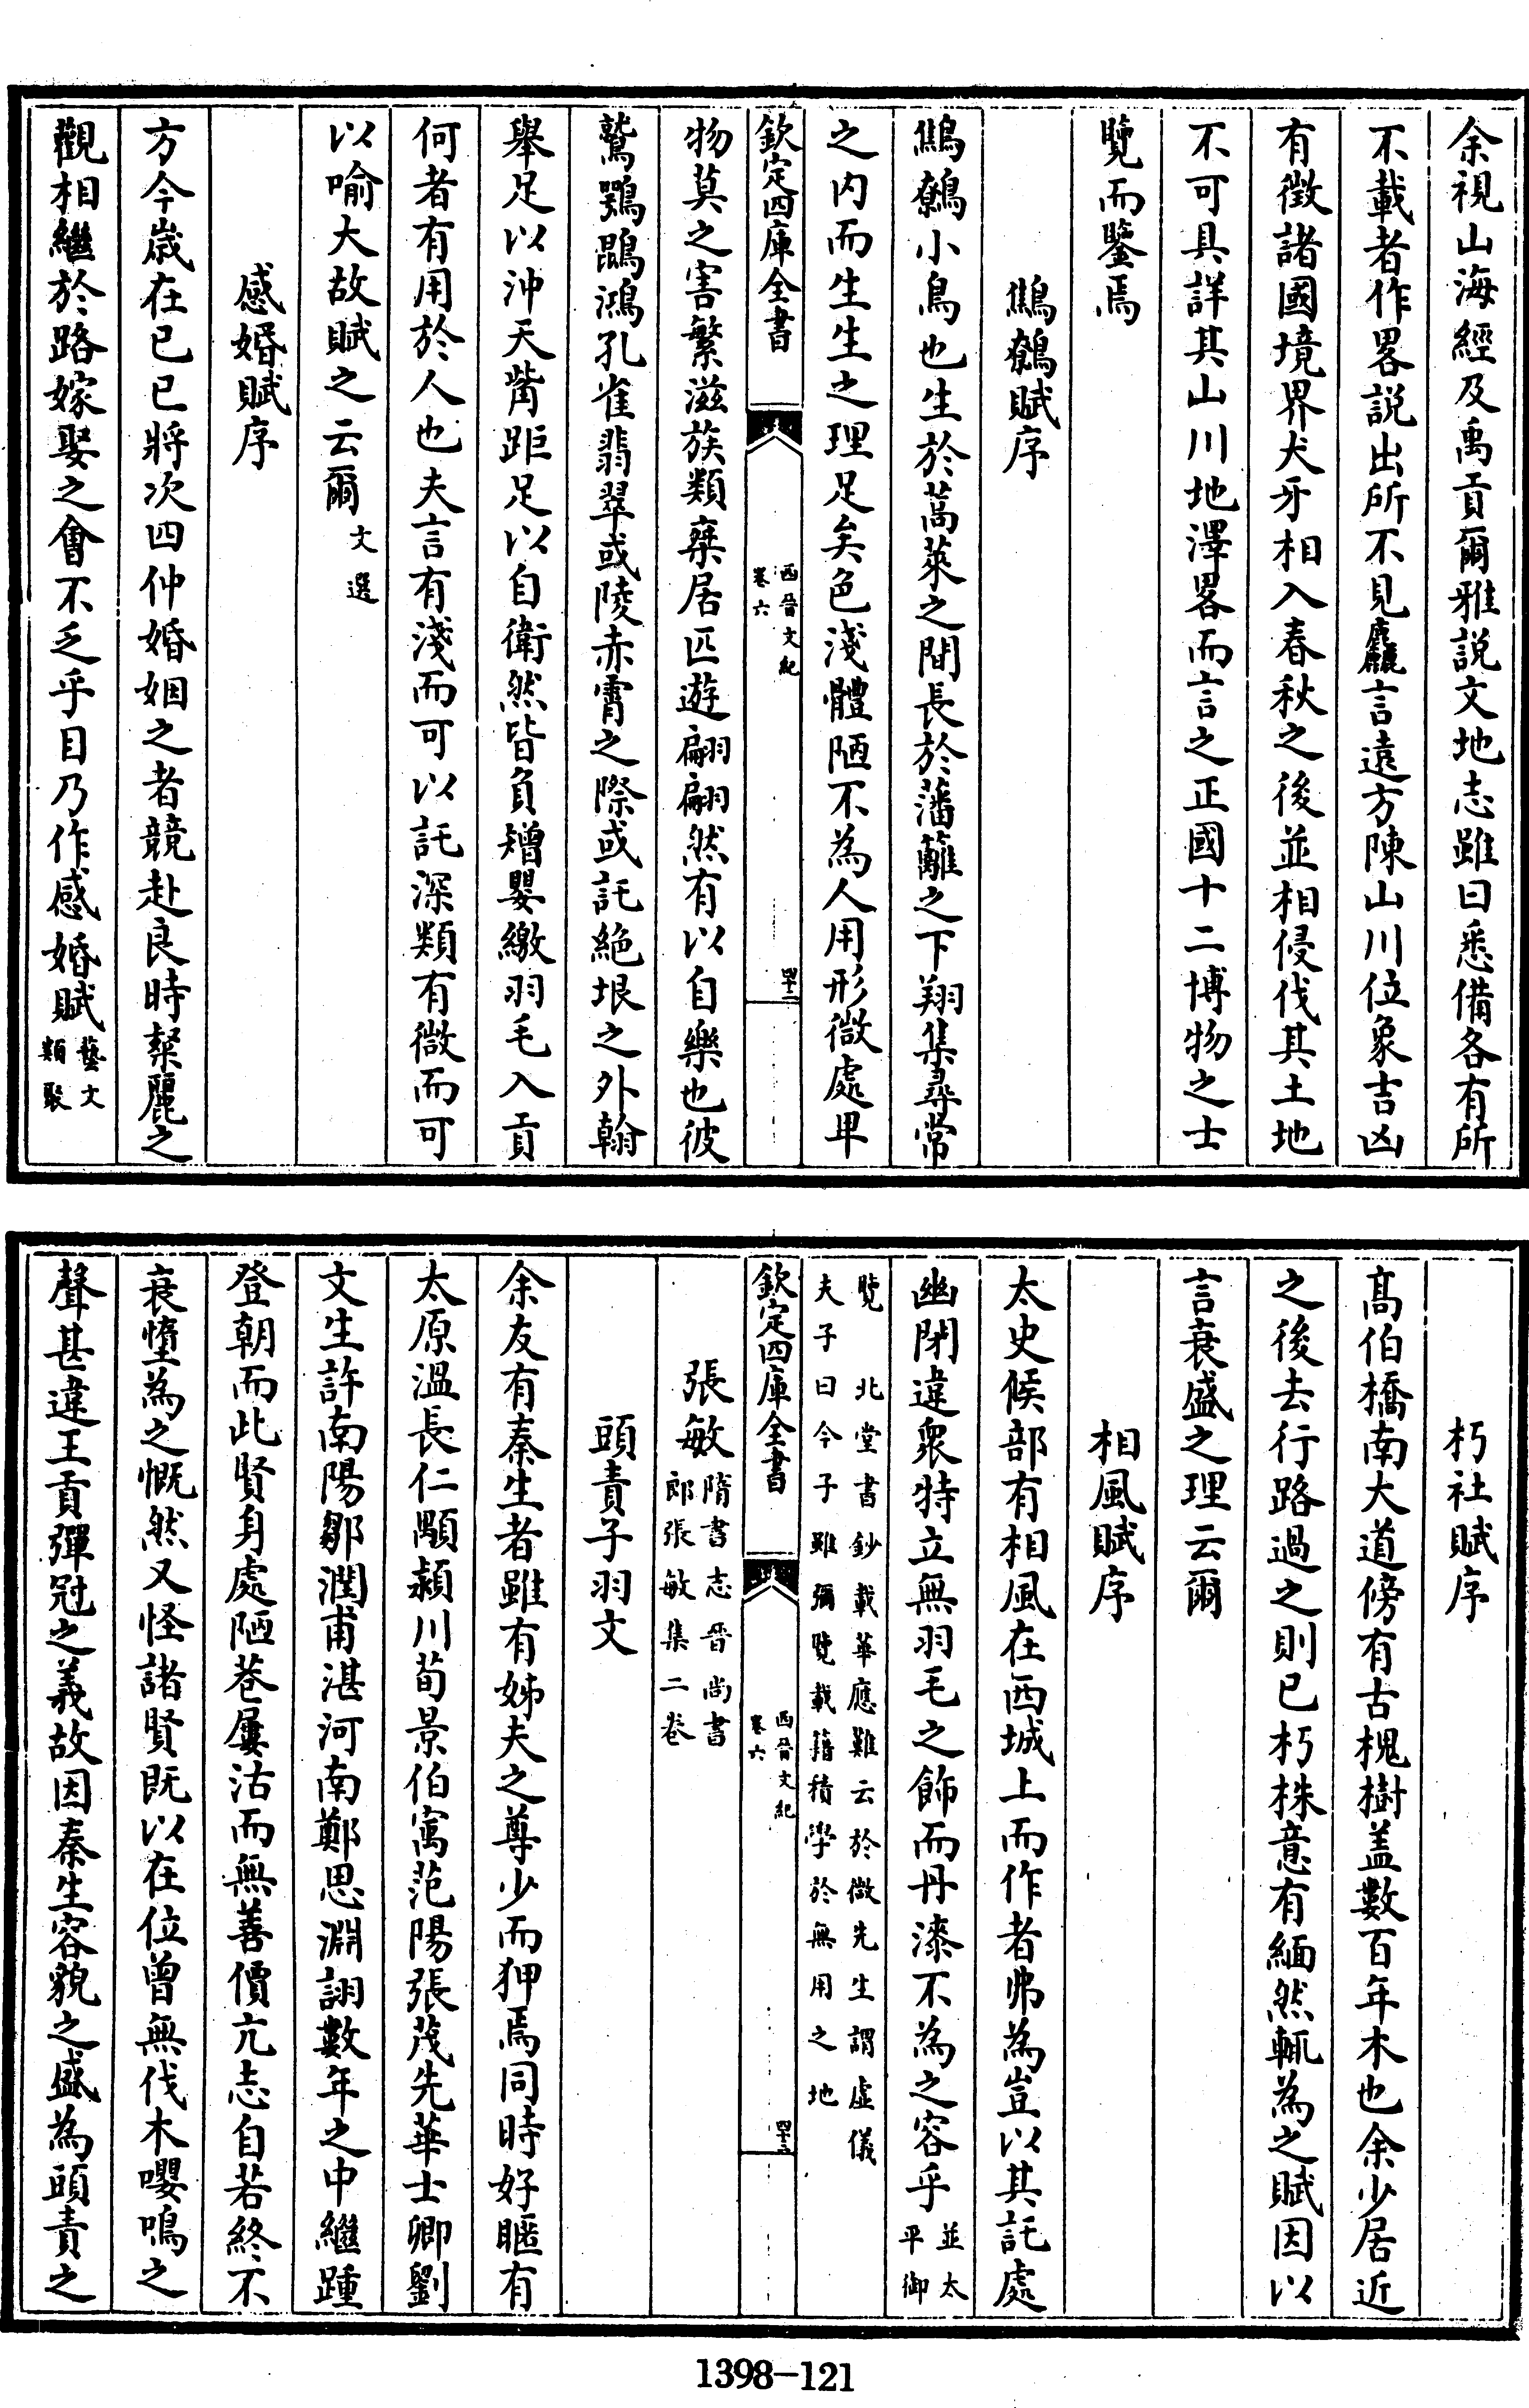 余視山海經及禹貢爾雅説文地志雖曰悉備各有所
不載者作畧説出所不見麤言遠方陳山川位象吉凶
有徴諸國境界犬牙相入春秋之後並相侵伐其土地
不可具詳其山川地澤畧而言之正國十二博物之士
覽而鑒焉
鷦鷯賦序
鷦鷯小鳥也生於蒿萊之間長於藩籬之下翔集尋常
之内而生生之理足矣色淺體陋不為人用形微處卑
欽定四庫全書
西晉文紀
卷六
四十二
物莫之害繁滋族類乗居匹遊翩翩然有以自樂也彼
鷲鶚鵾鴻孔雀翡翠或陵赤霄之際或託絶垠之外翰
舉足以沖天觜距足以自衛然皆負矰嬰繳羽毛入貢
何者有用於人也夫言有淺而可以託深類有微而可
以喻大故賦之云爾文選
感婚賦序
方今歳在已巳將次四仲婚姻之者競赴良時粲麗之
觀相繼於路嫁娶之會不乏乎目乃作感婚賦藝文
類聚
朽社賦序
髙伯橋南大道傍有古槐樹盖數百年木也余少居近
之後去行路過之則已朽株意有緬然輒為之賦因以
言衰盛之理云爾
相風賦序
太史候部有相風在西城上而作者弗為豈以其託處
幽閉違衆特立無羽毛之飾而丹漆不為之容乎並太
平御
覽 北堂書鈔載華應難云於微先生謂虚儀
夫子曰今子雖彌覽載籍積學於無用之地
欽定四庫全書
西晉文紀
卷六
四十三
張敏隋書志晉尚書
郎張敏集二卷
頭責子羽文
余友有秦生者雖有姊夫之尊少而狎焉同時好暱有
太原溫長仁顒潁川荀景伯寓范陽張茂先華士卿劉
文生許南陽鄒潤甫湛河南鄭思淵詡數年之中繼踵
登朝而此賢身處陋巷屢沽而無善價亢志自若終不
衰墮為之慨然又怪諸賢既以在位曾無伐木嚶鳴之
聲甚違王貢彈冠之義故因秦生容貌之盛為頭責之
1398-121